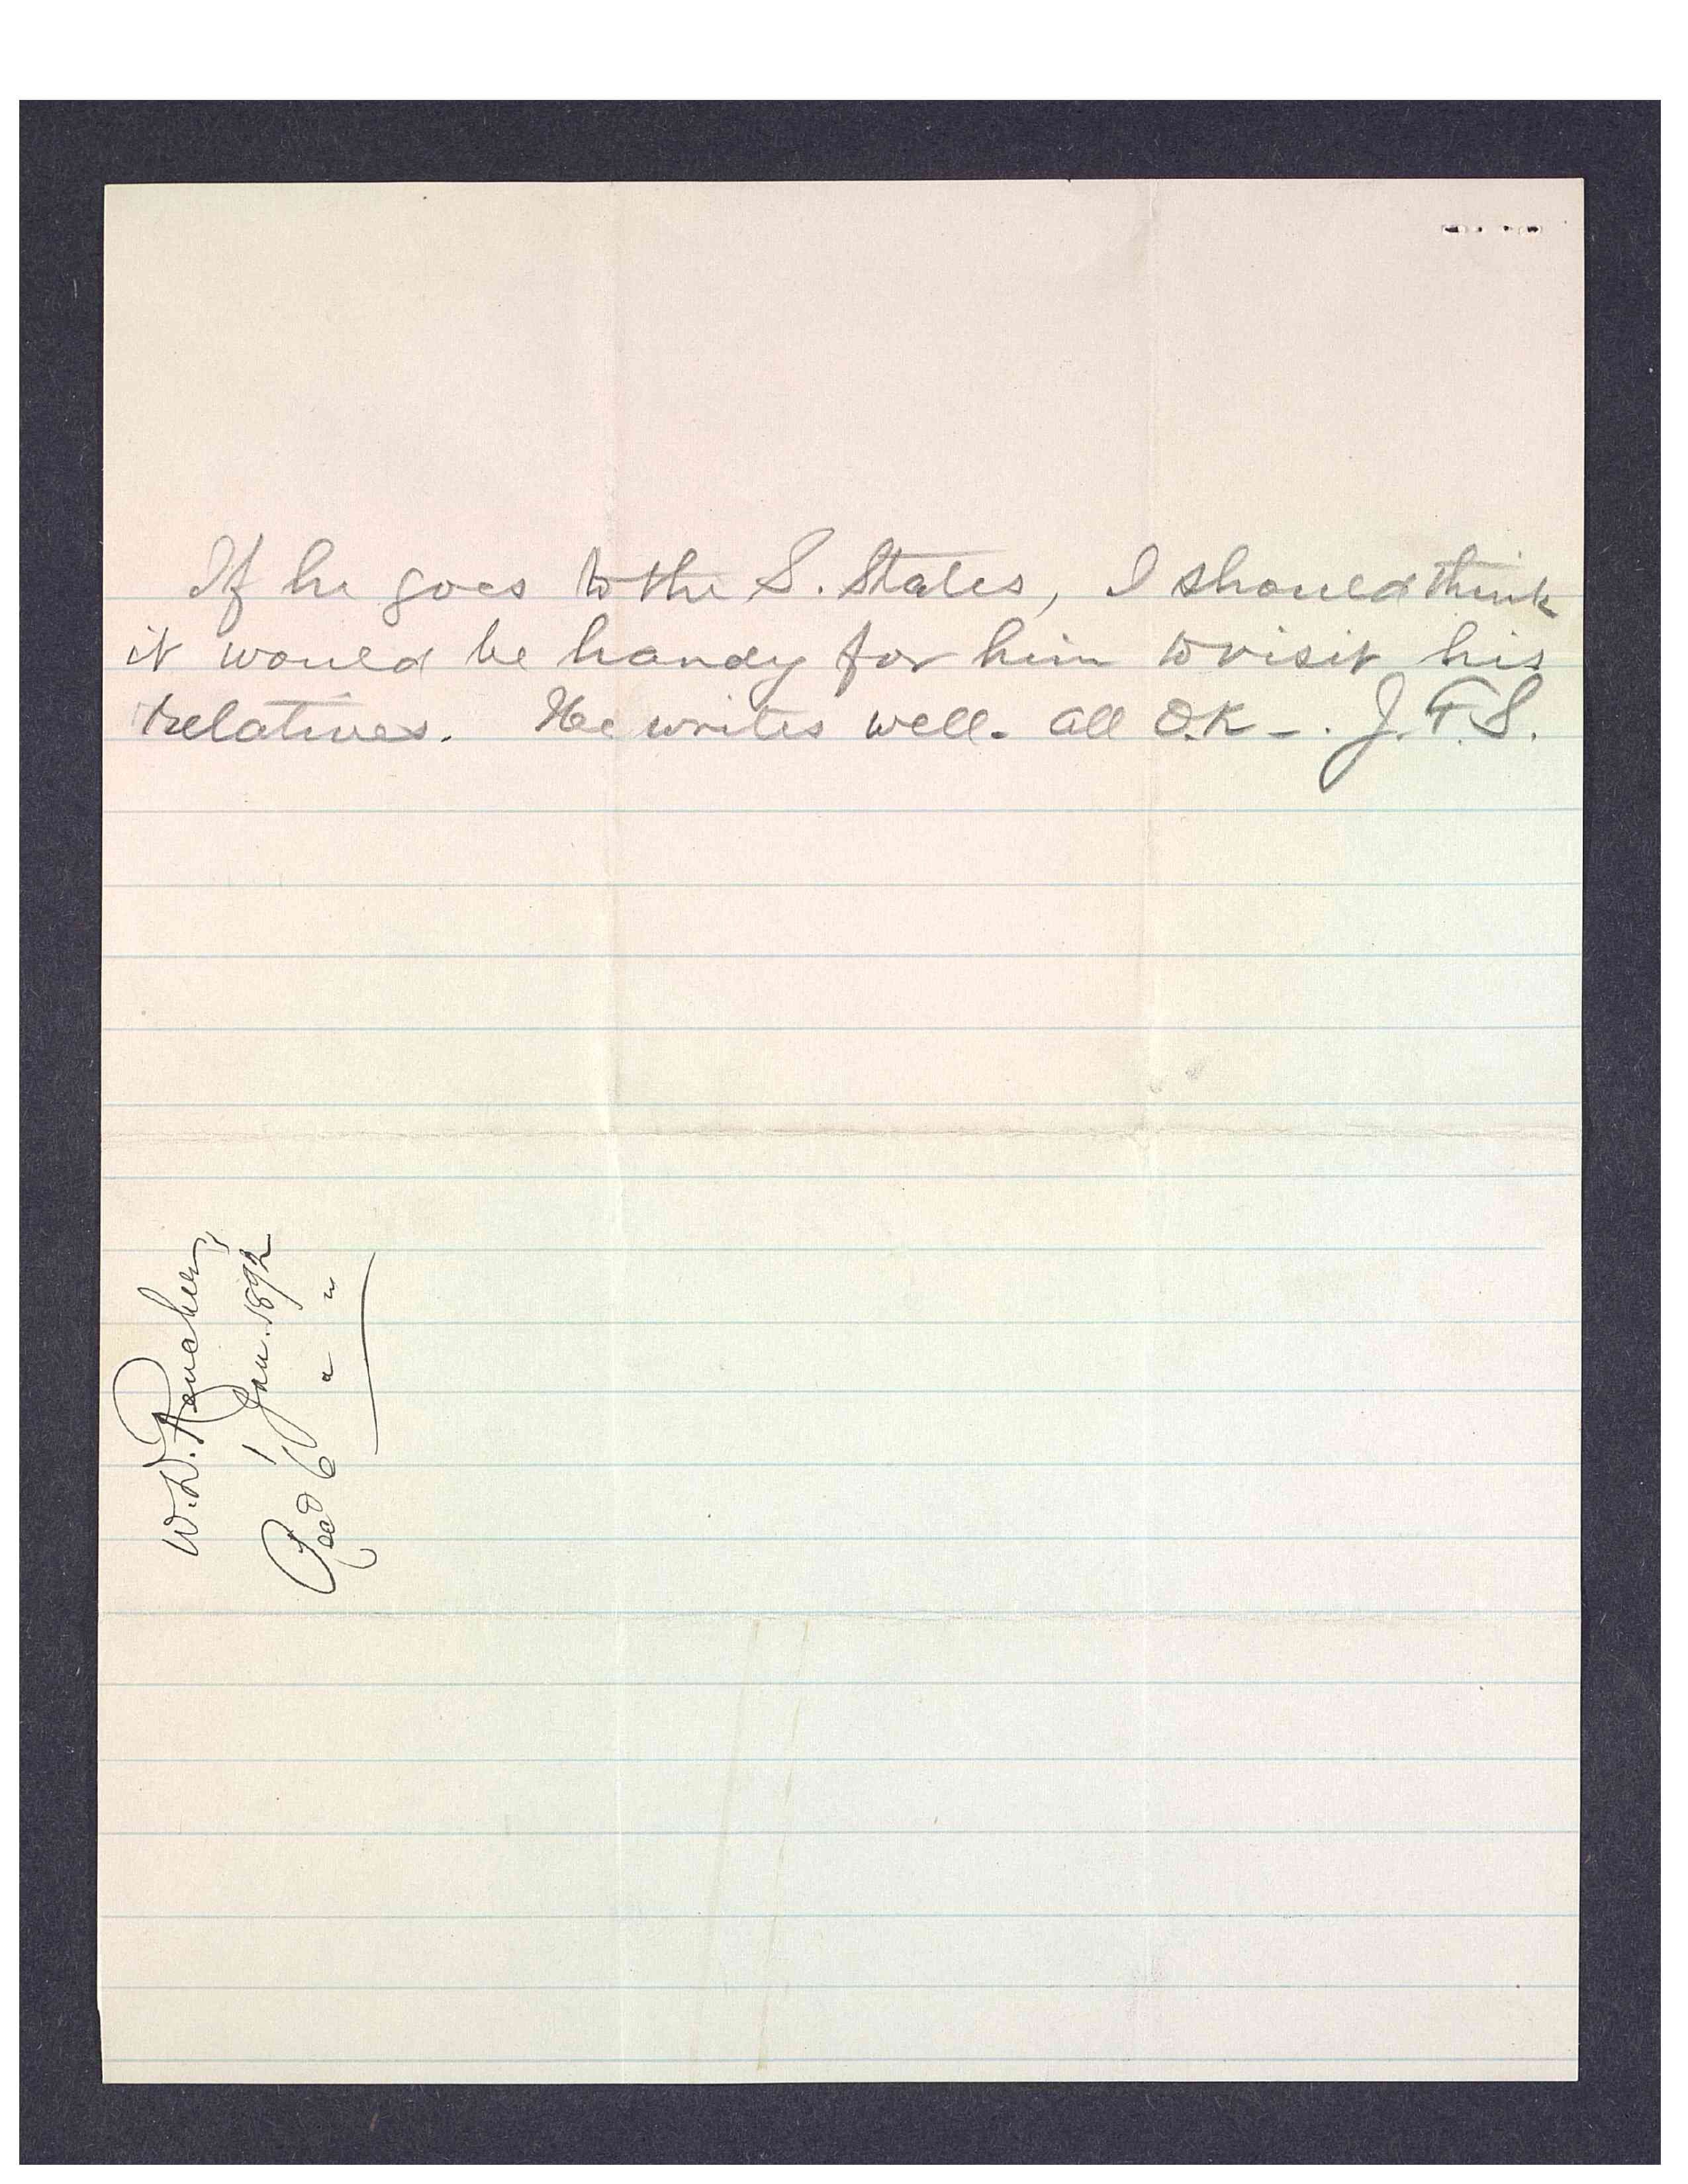 If he goes to the S. States, I should think
it would be handy for him to visit his
relatives. He writes well. all O.K -. J.F.S.
W.D.
1 Jan. 1892
Recd 6 " "